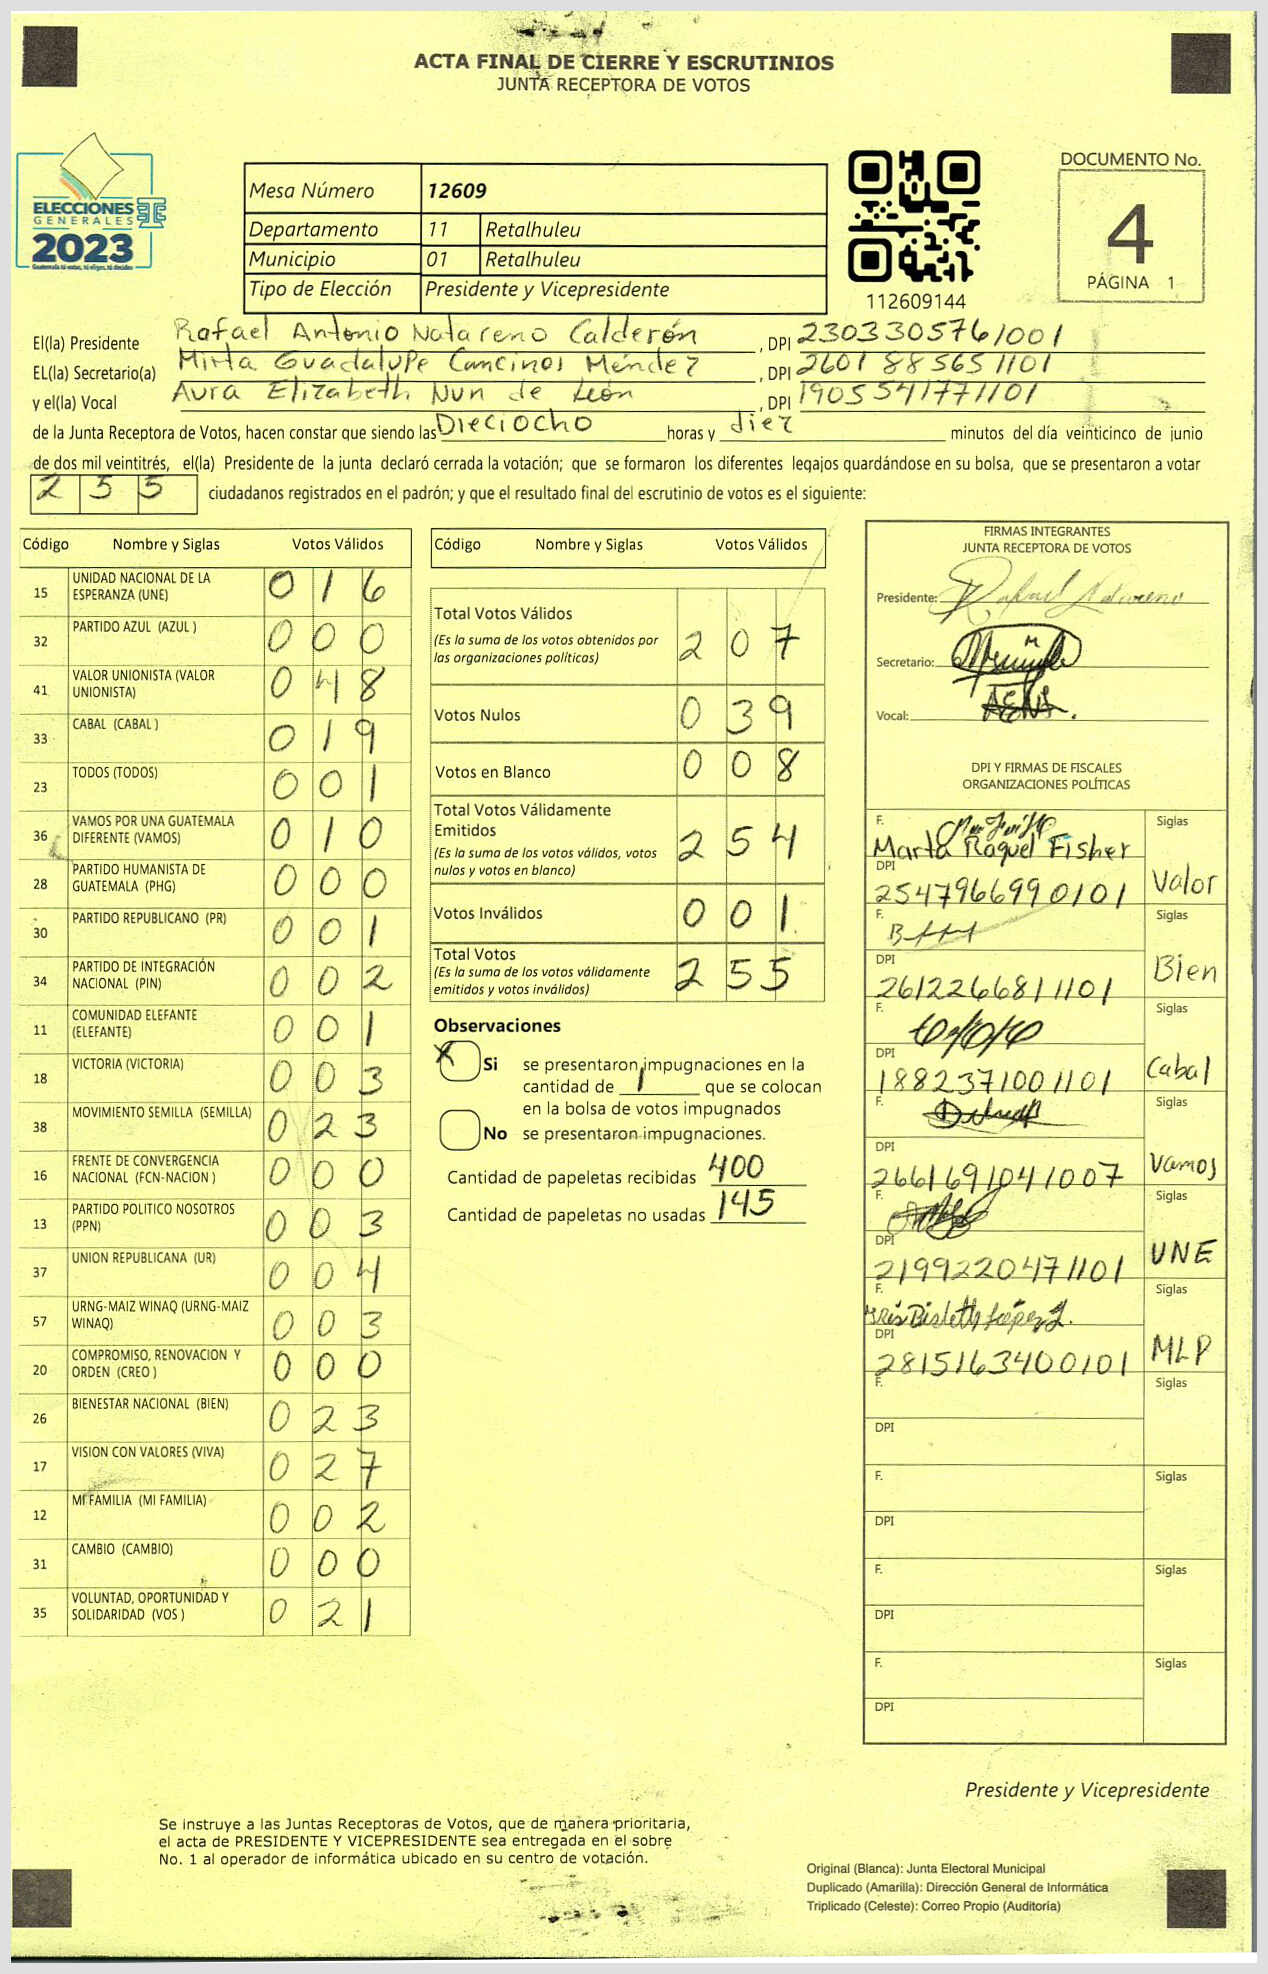 ACTA FINAL DE CIERRE Y ESCRUTINIOS
JUNTA RECEPTORA DE VOTOS
ELECCIONES
GENERALES
2023
Guatemala tú votas, tú eliges, tú decides
Mesa Número 12609
Departamento 11 Retalhuleu
Municipio 01 Retalhuleu
Tipo de Elección Presidente y Vicepresidente
112609144
DOCUMENTO No.
4
PÁGINA 1
El(la) Presidente Rafael Antonio Natareno Calderón, DPI 2303305761001
EL(la) Secretario(a) Mirta Guadalupe Cancinos Méndez, DPI 2601885651101
y el(la) Vocal Aura Elizabeth Nun de León, DPI 1905541771101
de la Junta Receptora de Votos, hacen constar que siendo las Dieciocho horas y diez minutos del día veinticinco de junio
de dos mil veintitrés, el(la) Presidente de la junta declaró cerrada la votación; que se formaron los diferentes legajos guardándose en su bolsa, que se presentaron a votar
255 ciudadanos registrados en el padrón; y que el resultado final del escrutinio de votos es el siguiente:
Código Nombre y Siglas Votos Válidos
15 UNIDAD NACIONAL DE LA ESPERANZA (UNE) 016
32 PARTIDO AZUL (AZUL ) 000
41 VALOR UNIONISTA (VALOR UNIONISTA) 048
33 CABAL (CABAL ) 019
23 TODOS (TODOS) 001
36 VAMOS POR UNA GUATEMALA DIFERENTE (VAMOS) 010
28 PARTIDO HUMANISTA DE GUATEMALA (PHG) 000
30 PARTIDO REPUBLICANO (PR) 001
34 PARTIDO DE INTEGRACIÓN NACIONAL (PIN) 002
11 COMUNIDAD ELEFANTE (ELEFANTE) 001
18 VICTORIA (VICTORIA) 003
38 MOVIMIENTO SEMILLA (SEMILLA) 023
16 FRENTE DE CONVERGENCIA NACIONAL (FCN-NACION ) 000
13 PARTIDO POLITICO NOSOTROS (PPN) 003
37 UNION REPUBLICANA (UR) 004
57 URNG-MAIZ WINAQ (URNG-MAIZ WINAQ) 003
20 COMPROMISO, RENOVACION Y ORDEN (CREO ) 000
26 BIENESTAR NACIONAL (BIEN) 023
17 VISION CON VALORES (VIVA) 027
12 MI FAMILIA (MI FAMILIA) 002
31 CAMBIO (CAMBIO) 000
35 VOLUNTAD, OPORTUNIDAD Y SOLIDARIDAD (VOS ) 021
Código Nombre y Siglas Votos Válidos
Total Votos Válidos 207
(Es la suma de los votos obtenidos por
las organizaciones políticas)
Votos Nulos 039
Votos en Blanco 008
Total Votos Válidamente
Emitidos 254
(Es la suma de los votos válidos, votos
nulos y votos en blanco)
Votos Inválidos 001
Total Votos 255
(Es la suma de los votos válidamente
emitidos y votos inválidos)
Observaciones
X Si se presentaron impugnaciones en la
cantidad de 1 que se colocan
en la bolsa de votos impugnados
No se presentaron impugnaciones.
Cantidad de papeletas recibidas 400
Cantidad de papeletas no usadas 145
FIRMAS INTEGRANTES
JUNTA RECEPTORA DE VOTOS
Presidente: Rafael Natareno
Secretario:
Vocal:
DPI Y FIRMAS DE FISCALES
ORGANIZACIONES POLÍTICAS
F. Marta Raquel Fisher Siglas
DPI 2547966990101 Valor
F. Siglas
DPI 2612266811101 Bien
F. Siglas
DPI 1882371001101 Cabal
F. Siglas
DPI 2661691041007 Vamos
F. Siglas
DPI 2199220471101 UNE
F. Siglas
DPI 2815163400101 MLP
F. Siglas
DPI
F. Siglas
DPI
F. Siglas
DPI
F. Siglas
DPI
Presidente y Vicepresidente
Se instruye a las Juntas Receptoras de Votos, que de manera prioritaria,
el acta de PRESIDENTE Y VICEPRESIDENTE sea entregada en el sobre
No. 1 al operador de informática ubicado en su centro de votación.
Original (Blanca): Junta Electoral Municipal
Duplicado (Amarilla): Dirección General de Informática
Triplicado (Celeste): Correo Propio (Auditoría)